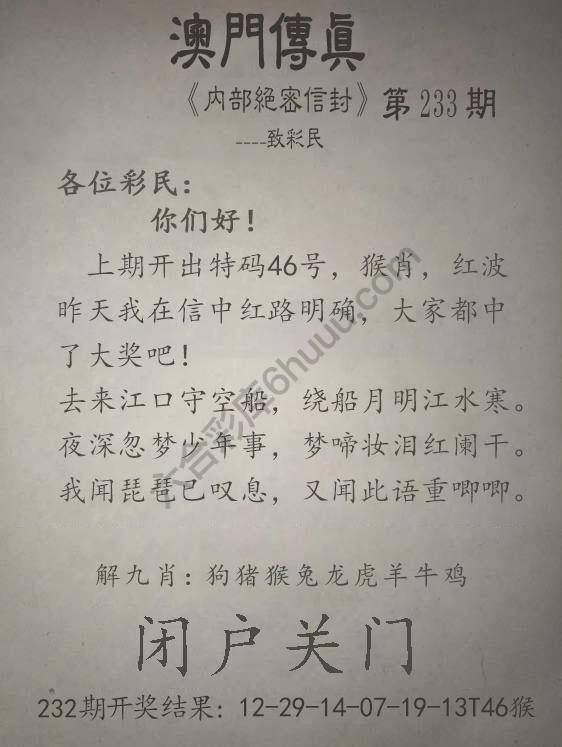 澳門傳眞
《内部絕密信封》第233期
----致彩民
各位彩民：
你们好！
上期开出特码46号，猴肖，红波
昨天我在信中红路明确，大家都中
了大奖吧！
去来江口守空船，绕船月明江水寒。
夜深忽梦少年事，梦啼妆泪红阑干。
我闻琵琶已叹息，又闻此语重唧唧。
解九肖：狗猪猴兔龙虎羊牛鸡
闭户关门
232期开奖结果：12-29-14-07-19-13T46猴
六合彩库6huuu.com